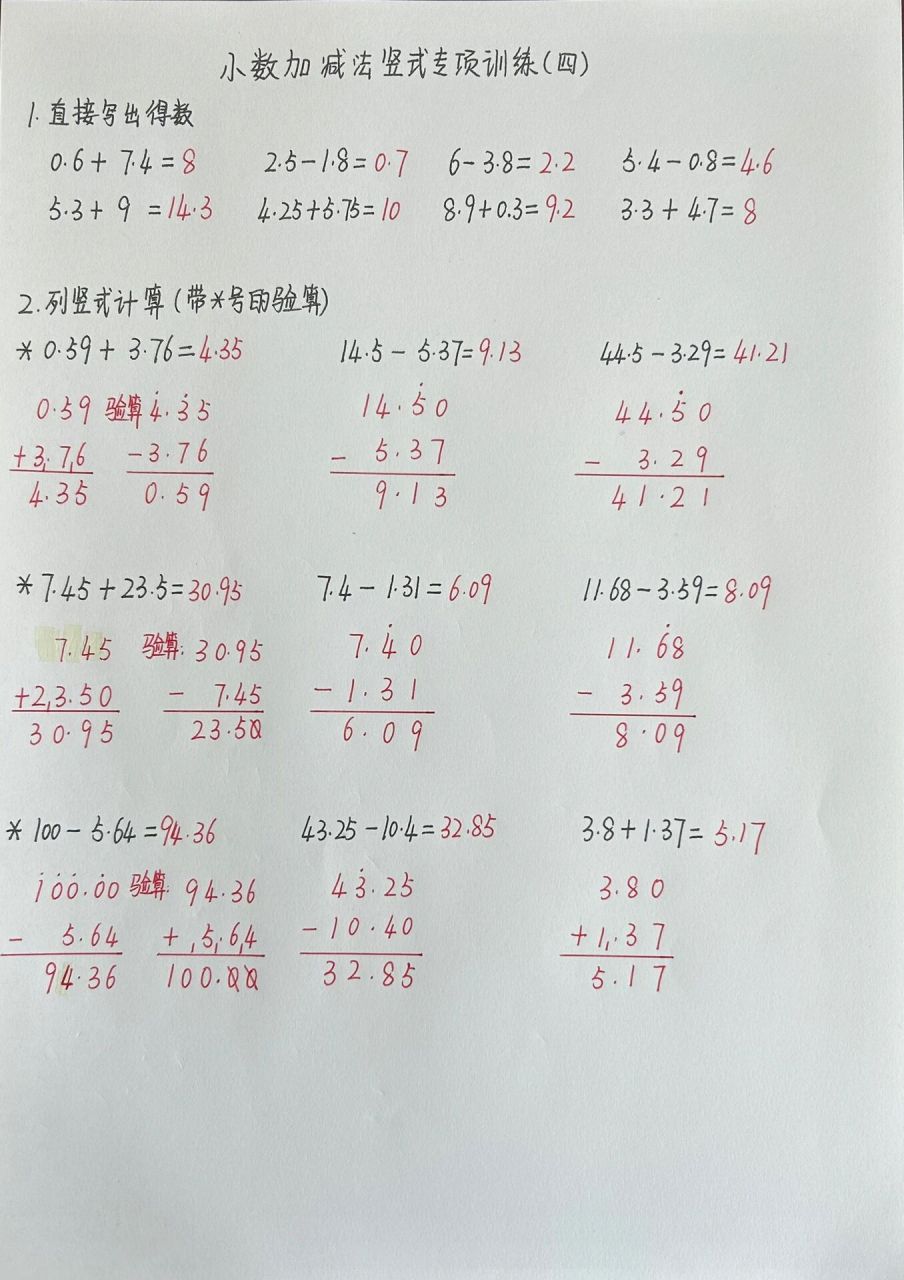 小数加减法竖式专项训练(四)
1. 直接写出得数
0.6 + 7.4 = 8 2.5 - 1.8 = 0.7 6 - 3.8 = 2.2 5.4 - 0.8 = 4.6
5.3 + 9 = 14.3 4.25 + 5.75 = 10 8.9 + 0.3 = 9.2 3.3 + 4.7 = 8
2. 列竖式计算(带*号的验算)
* 0.59 + 3.76 = 4.35 14.5 - 5.37 = 9.13 44.5 - 3.29 = 41.21
0.59 验算 4.35 14.50 44.50
+3.76 -3.76 - 5.37 - 3.29
4.35 0.59 9.13 41.21
* 7.45 + 23.5 = 30.95 7.4 - 1.31 = 6.09 11.68 - 3.59 = 8.09
7.45 验算: 30.95 7.40 11.68
+23.50 - 7.45 - 1.31 - 3.59
30.95 23.50 6.09 8.09
* 100 - 5.64 = 94.36 43.25 - 10.4 = 32.85 3.8 + 1.37 = 5.17
100.00 验算: 94.36 43.25 3.80
- 5.64 + 5.64 - 10.40 + 1.37
94.36 100.00 32.85 5.17